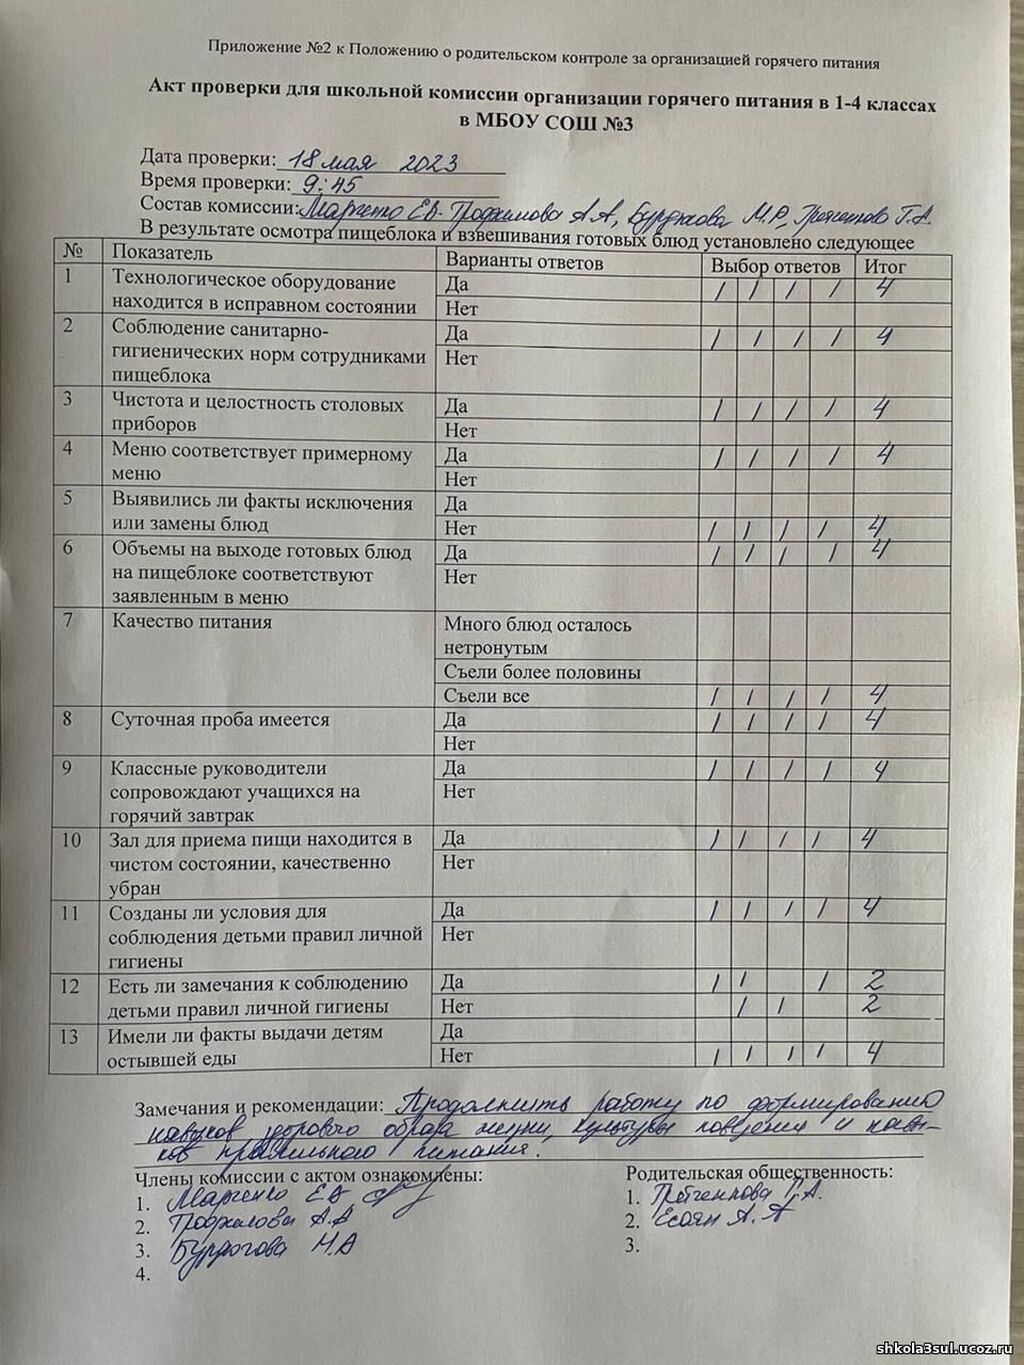 Приложение №2 к Положению о родительском контроле за организацией горячего питания
Акт проверки для школьной комиссии организации горячего питания в 1-4 классах
в МБОУ СОШ №3
Дата проверки: 18 мая 2023
Время проверки: 9:45
Состав комиссии: Марченко Е.В. А.А, М.А, Г.А.
В результате осмотра пищеблока и взвешивания готовых блюд установлено следующее
№ Показатель Варианты ответов Выбор ответов Итог
1 Технологическое оборудование Да / / / / 4
находится в исправном состоянии Нет
2 Соблюдение санитарно- Да / / / / 4
гигиенических норм сотрудниками Нет
пищеблока
3 Чистота и целостность столовых Да / / / / 4
приборов Нет
4 Меню соответствует примерному Да / / / / 4
меню Нет
5 Выявились ли факты исключения Да
или замены блюд Нет / / / / 4
6 Объемы на выходе готовых блюд Да / / / / 4
на пищеблоке соответствуют Нет
заявленным в меню
7 Качество питания Много блюд осталось
нетронутым
Съели более половины
Съели все / / / / 4
8 Суточная проба имеется Да / / / / 4
Нет
9 Классные руководители Да / / / / 4
сопровождают учащихся на Нет
горячий завтрак
10 Зал для приема пищи находится в Да / / / / 4
чистом состоянии, качественно Нет
убран
11 Созданы ли условия для Да / / / / 4
соблюдения детьми правил личной Нет
гигиены
12 Есть ли замечания к соблюдению Да / / / 2
детьми правил личной гигиены Нет / / 2
13 Имели ли факты выдачи детям Да
остывшей еды Нет / / / / 4
Замечания и рекомендации: Продолжить работу по формированию
навыков здорового образа жизни, культуры поведения и навы-
ков правильного питания.
Члены комиссии с актом ознакомлены: Родительская общественность:
1. Марченко Е.В 1. Г.А.
2. А.А 2. Есаян А.А
3. М.А 3.
4.
shkola3sul.ucoz.ru